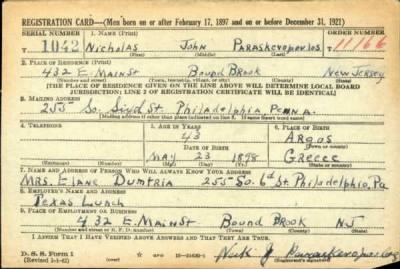 REGISTRATION CARD—(Men born on or after February 17, 1897 and on or before December 31, 1921)
SERIAL NUMBER 1. NAME (Print) ORDER NUMBER
1042 Nicholas John Paraskevopoulos 11166
(First) (Middle) (Last)
2. PLACE OF RESIDENCE (Print)
432 E. Main St Bound Brook New Jersey
(Number and street) (Town, township, village, or city) (County) (State)
[THE PLACE OF RESIDENCE GIVEN ON THE LINE ABOVE WILL DETERMINE LOCAL BOARD
JURISDICTION; LINE 2 OF REGISTRATION CERTIFICATE WILL BE IDENTICAL]
3. MAILING ADDRESS
255 So. St Philadelphia Penna.
[Mailing address if other than place indicated on line 2. If same insert word same]
4. TELEPHONE 5. AGE IN YEARS 6. PLACE OF BIRTH
43 Argos
DATE OF BIRTH (Town or county)
May 23 1898 Greece
(Mo.) (Day) (Yr.) (State or country)
7. NAME AND ADDRESS OF PERSON WHO WILL ALWAYS KNOW YOUR ADDRESS
Mrs. Elane Dumtria 255 So. 6th St. Philadelphia, Pa
8. EMPLOYER'S NAME AND ADDRESS
Texas Lunch
9. PLACE OF EMPLOYMENT OR BUSINESS
432 E. Main St Bound Brook NJ
(Number and street or R. F. D. number) (Town) (County) (State)
I AFFIRM THAT I HAVE VERIFIED ABOVE ANSWERS AND THAT THEY ARE TRUE.
D. S. S. Form 1
(Revised 1-1-42) (over) Nick J Paraskevopoulos